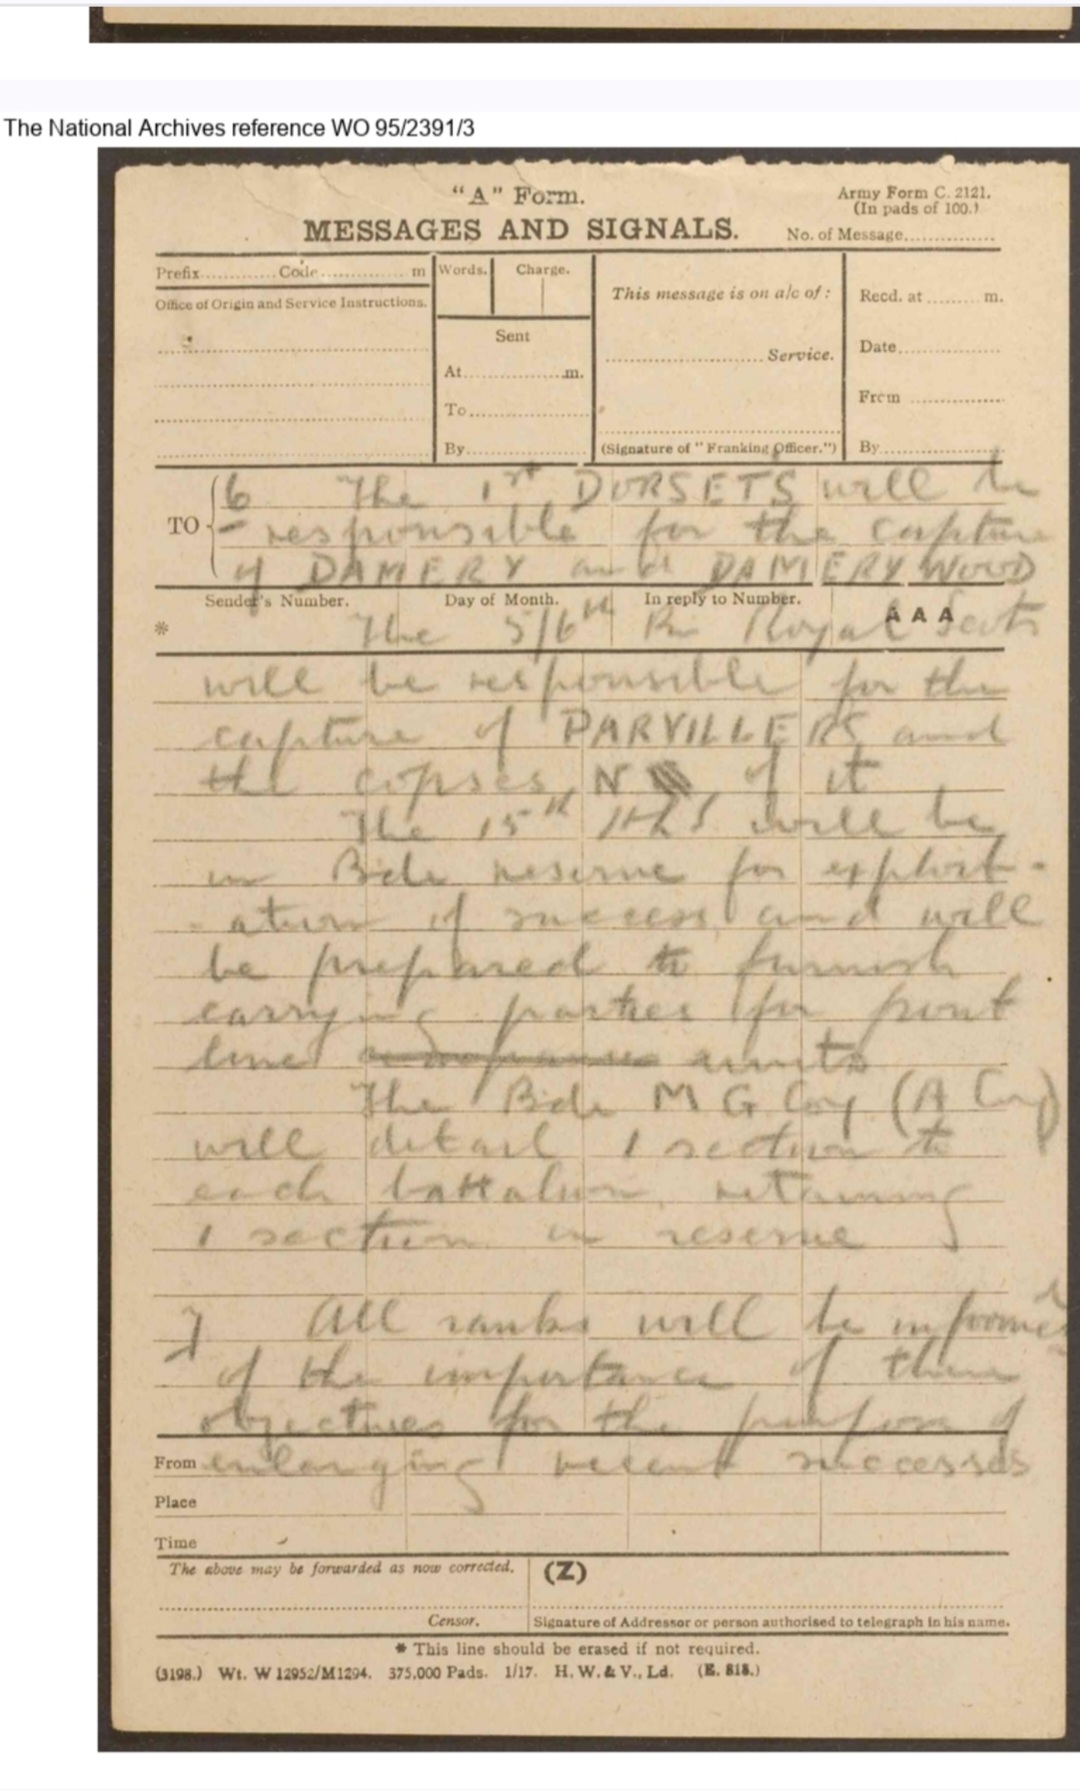 The National Archives reference WO 95/2391/3
"A" Form.
Army Form C. 2121.
(In pads of 100.)
MESSAGES AND SIGNALS.
No. of Message
Prefix Code m
Words.
Charge.
This message is on a/c of:
Recd. at m.
Office of Origin and Service Instructions.
Sent
Service.
Date
At m.
From
To
By
(Signature of "Franking Officer.")
By
TO
6 The 1st DORSETS will be
responsible for the capture
of DAMERY and DAMERY WOOD
Sender's Number.
Day of Month.
In reply to Number.
A A A
* The 5/6th Bn Royal Scots
will be responsible for the
capture of PARVILLERS and
the copses N of it
The 15th HLI will be
in Bde reserve for exploit-
-ation of success and will
be prepared to furnish
carrying parties for front
line units
The Bde M G Coy (A Coy)
will detail 1 section to
each battalion, retaining
1 section in reserve
7 All ranks will be informed
of the importance of these
objectives for the purpose of
From enlarging recent successes
Place
Time
The above may be forwarded as now corrected.
(Z)
Censor.
Signature of Addressor or person authorised to telegraph in his name.
* This line should be erased if not required.
(3198.) Wt. W 12952/M1294. 375,000 Pads. 1/17. H. W. & V., Ld. (E. 818.)